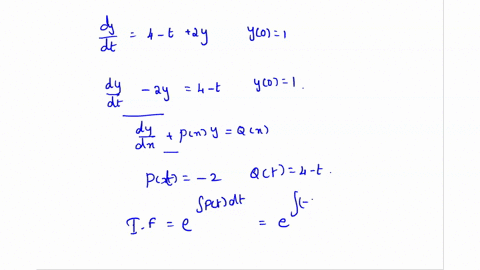 dy/dt = 4-t +2y y(0)=1
dy/dt - 2y = 4-t y(0)=1.
dy/dx + p(x) y = Q(x)
p(t) = -2 Q(t) = 4-t.
I.F = e^∫p(t) dt = e^∫(-